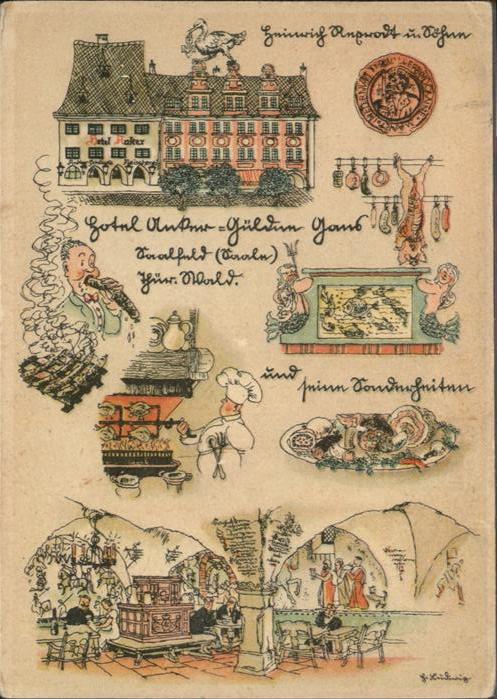 Heinrich Reprodt u. Söhne
Hotel Anker
Hotel Anker = Güldne Gans
Saalfeld (Saale)
Thür. Wald.
und
seine Sonderheiten
H. Ludwig